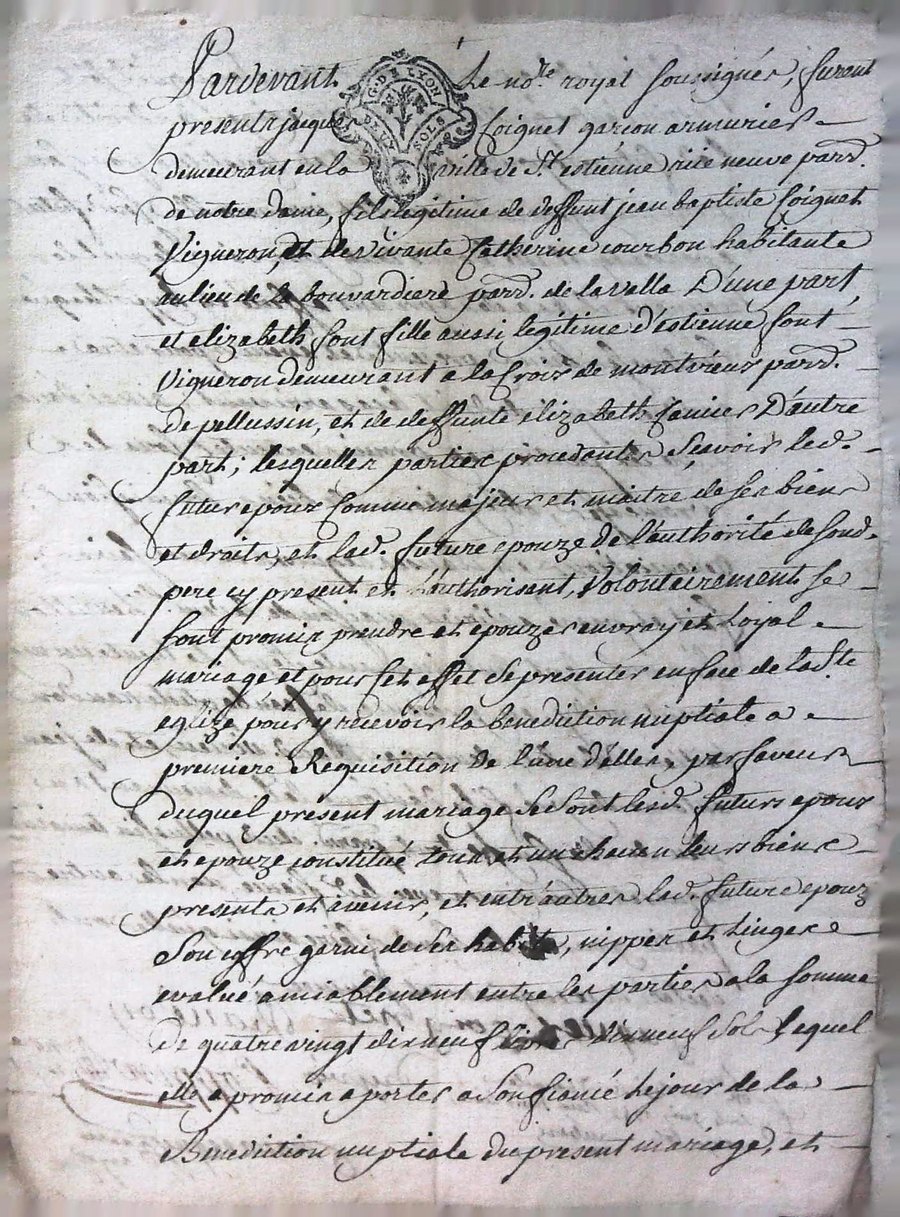 Pardevant Le no.re royal soussignés, furent
G. DE LYON
DEUX SOLS
presents jacques Coignet garcon armurier
demeurant en la ville de St. estienne rüe neuve parr.
de notre dame, fils legitime de deffunt jean baptiste Coignet
Vigneron, et de vivante Catherine courbon habitante
au lieu de la bouvardiere parr. de la valla D'une part,
et elizabeth font fille aussi legitime d'estienne font
Vigneron demeurant a la Croix de montvieux parr.
de pellussin, et de deffunte elizabeth D'autre
part; lesquelles parties procedantes Sçavoir led.
futur epoux Comme majeur et maitre de ses biens
et droits, et lad. future epouze de l'authorité de sond.
pere cy present et L'authorisant, Volontairement se
sont promis prendre et epouzer en vray et Loyal
mariage et pour Cet effet se presenter en face de la Ste
eglize pour y recevoir la benediction nuptiale a
premiere Requisition de L'une d'elles, par faveur
duquel present mariage se sont lesd. futurs epoux
et epouze constitué tous et un chacun leurs biens
presents et avenir, et entr'autres lad. future epouze
Son coffre garni de ses habits, nippes et Linges
evalué amiablement entre les parties a la somme
de quatre vingt dix neuf livres dix neuf sols Lequel
elle a promis aporter a Son fiancé le jour de la
Benediction nuptiale du present mariage, et